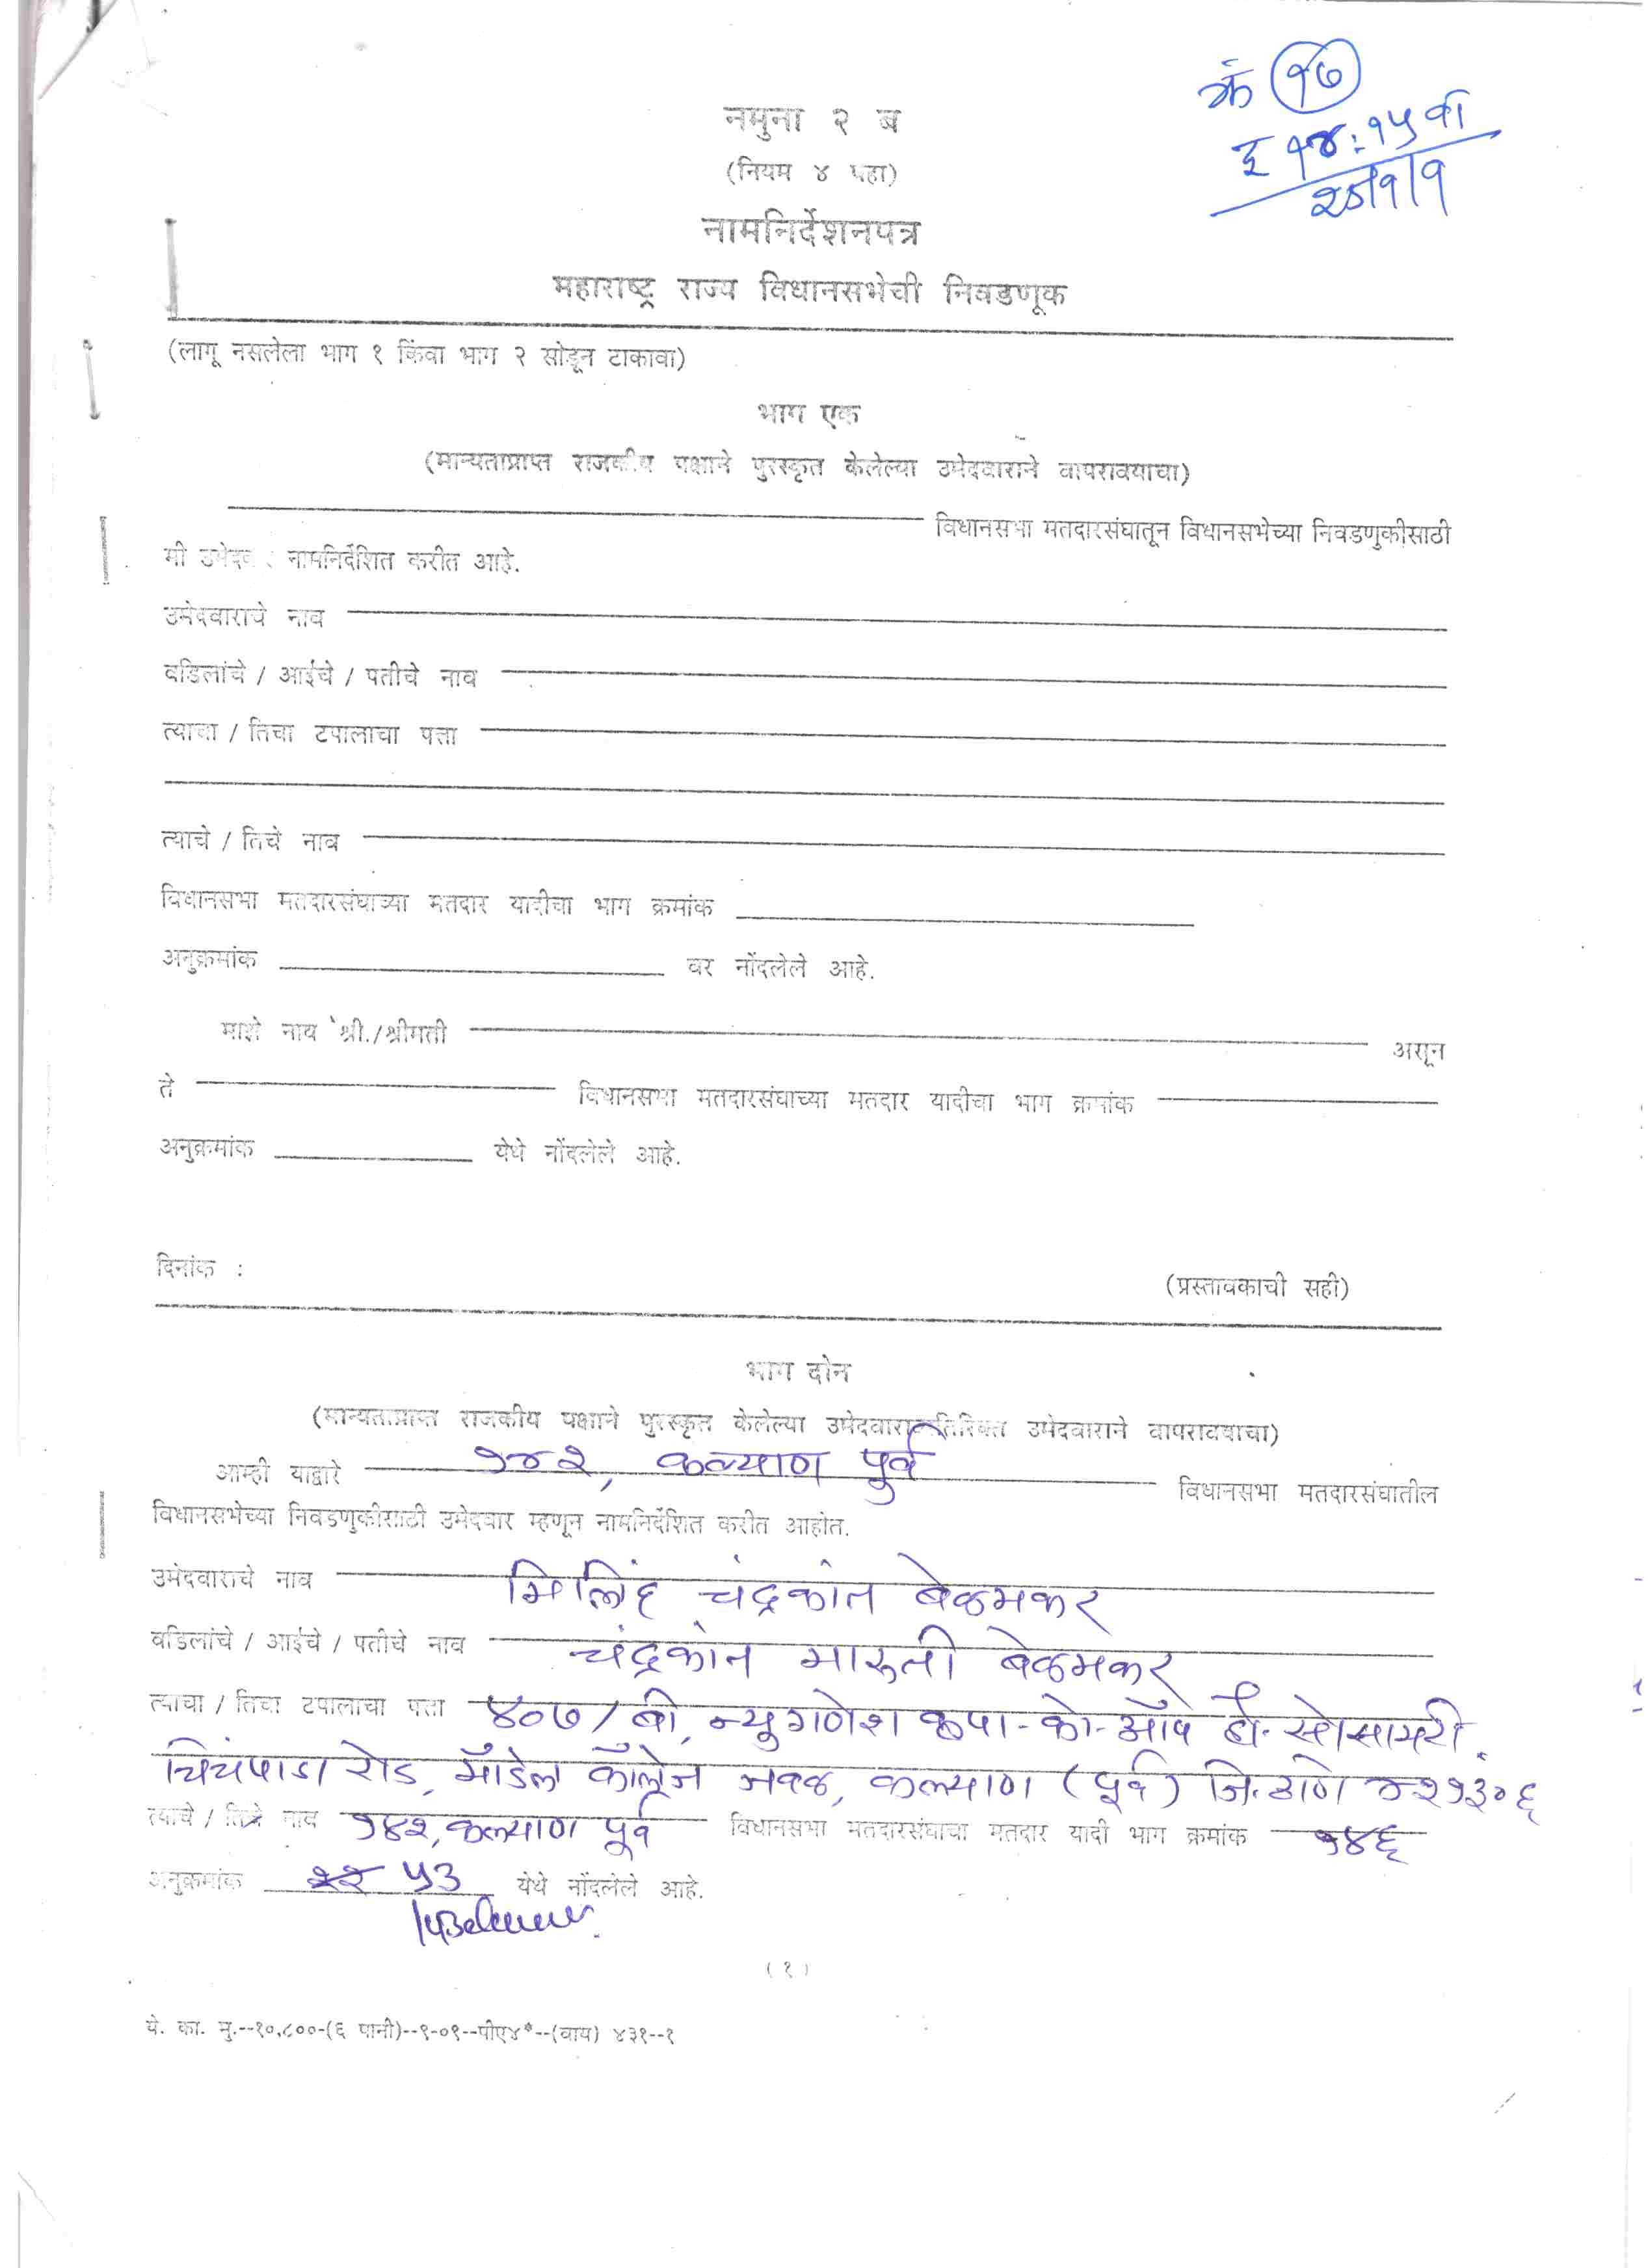 क्रं १७
इ १४:१५ वा
नमुना २ ब
(नियम ४ पहा)
नामनिर्देशनपत्र
महाराष्ट्र राज्य विधानसभेची निवडणूक
(लागू नसलेला भाग १ किंवा भाग २ सोडून टाकावा)
भाग एक
(मान्यताप्राप्त राजकीय पक्षाने पुरस्कृत केलेल्या उमेदवाराने वापरावयाचा)
विधानसभा मतदारसंघातून विधानसभेच्या निवडणुकीसाठी
मी नामनिर्देशित करीत आहे.
उमेदवाराचे नाव
वडिलांचे / आईचे / पतीचे नाव
त्याचा / तिचा टपालाचा पत्ता
त्याचे / तिचे नाव
विधानसभा मतदारसंघाच्या मतदार यादीचा भाग क्रमांक
अनुक्रमांक वर नोंदलेले आहे.
माझे नाव श्री./श्रीमती असून
ते विधानसभा मतदारसंघाच्या मतदार यादीचा भाग क्रमांक
अनुक्रमांक येथे नोंदलेले आहे.
दिनांक : (प्रस्तावकाची सही)
भाग दोन
(मान्यताप्राप्त राजकीय पक्षाने पुरस्कृत केलेल्या उमेदवाराव्यतिरिक्त उमेदवाराने वापरावयाचा)
आम्ही याद्वारे १४२, कल्याण पुर्व विधानसभा मतदारसंघातील
विधानसभेच्या निवडणुकीसाठी उमेदवार म्हणून नामनिर्देशित करीत आहोत.
उमेदवाराचे नाव मिलिंद चंद्रकांत बेळमकर
वडिलांचे / आईचे / पतीचे नाव चंद्रकांत मारुती बेळमकर
त्याचा / तिचा टपालाचा पत्ता ४०७/बी, न्यु गणेश कृपा-को-ऑप हौ. सोसायटी,
चिंचपाडा रोड, मॉडेल कॉलेज जवळ, कल्याण (पूर्व) जि. ठाणे ४२१३०६
त्याचे / तिचे नाव १४२, कल्याण पूर्व विधानसभा मतदारसंघाचा मतदार यादी भाग क्रमांक १४६
अनुक्रमांक ५३ येथे नोंदलेले आहे.
(१)
ये. का. मु.--१०,८००-(६ पानी)--९-०९--पीए४*--(वाय) ४३१--१